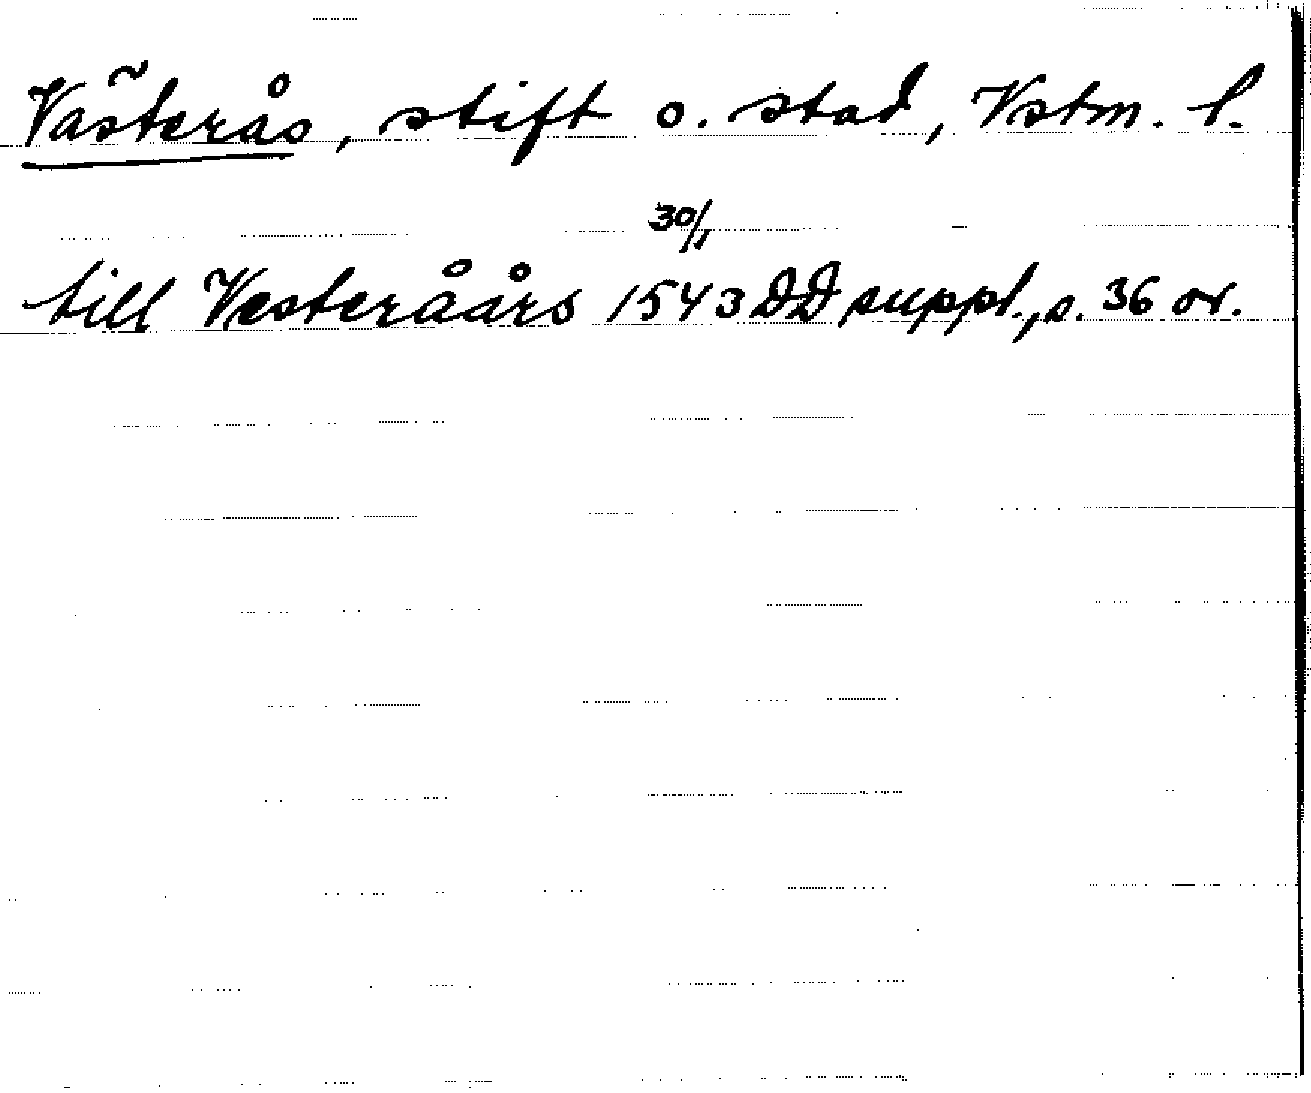 Västerås, stift o. stad, Vstm. l.
30/1
till Vesteråårs 1543 DD suppl., s. 36 or.